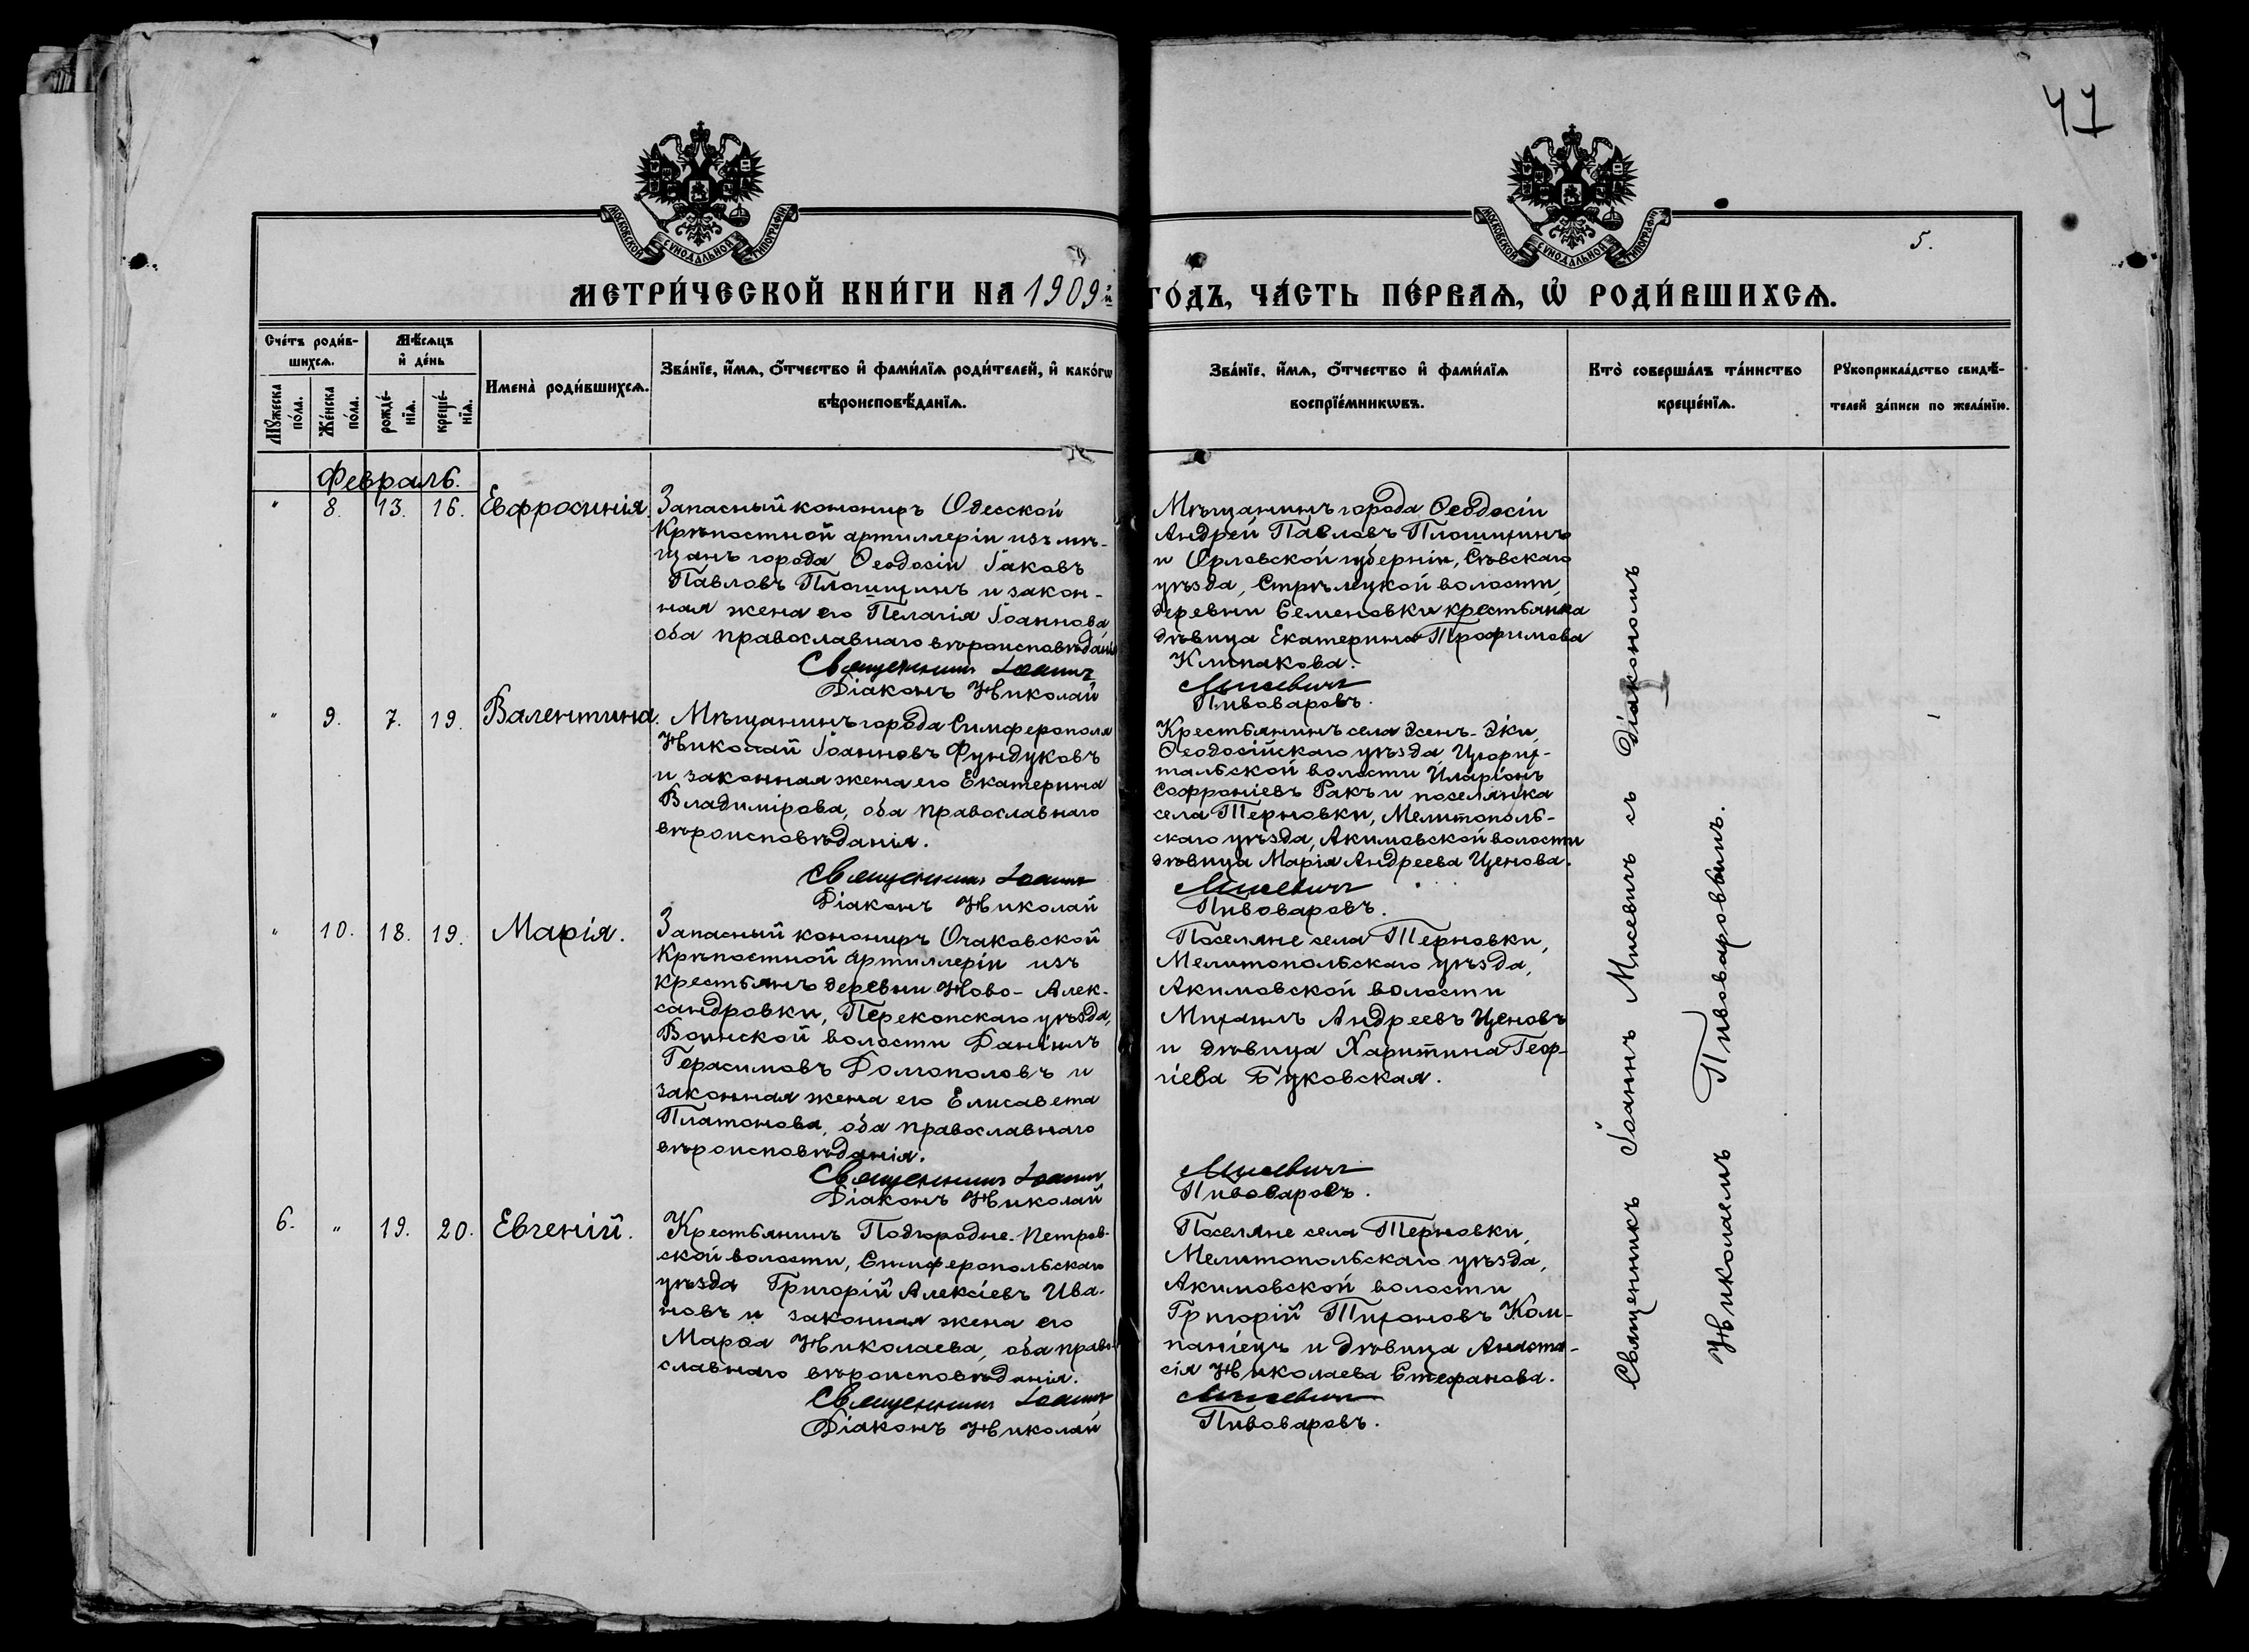 41
5.
МОСКОВСКОЙ СѴНОДАЛЬНОЙ ТИПОГРАФІИ
МОСКОВСКОЙ СѴНОДАЛЬНОЙ ТИПОГРАФІИ
МЕТРИ́ЧЕСКОЙ КНИ́ГИ НА 1909й ГО́ДЪ, ЧА́СТЬ ПЕ́РВАѦ, Ѡ҆ РОДИ́ВШИХСѦ.
Сче́тъ роди́в-
шихсѧ.
Мꙋ́жеска
по́ла.
Же́нска
по́ла.
Мѣ́сѧцъ
и҆ де́нь
рожде́-
нїѧ.
креще́-
нїѧ.
Имена̀ роди́вшихсѧ.
Зва́нїе, и҆́мѧ, ѻ҆́тчество и҆ фами́лїѧ роди́телей, и҆ како́гѡ
вѣроисповѣ́данїѧ.
Зва́нїе, и҆́мѧ, ѻ҆́тчество и҆ фами́лїѧ
воспрїе́мникѡвъ.
Кто̀ соверша́лъ та́инство
креще́нїѧ.
Рꙋкоприкла́дство свидѣ́-
телей за́писи по жела́нїю.
Февраль.
" 8. 13. 16. Евфросинія.
Запасный кононир Одесской
Крѣпостной артиллеріи изъ мѣ-
щанъ города Ѳеодосіи Іаковъ
Павловъ Площицынъ и закон-
ная жена его Пелагія Іоаннова,
оба православнаго вѣроисповѣданія
Священникъ Іоаннъ
Діаконъ Николай
Мѣщанинъ города Ѳеодосіи
Андрей Павловъ Площицынъ
и Орловской губерніи, Сѣвскаго
уѣзда, Стрѣлецкой волости,
деревни Семеновки крестьянка
дѣвица Екатерина Трофимова
Климакова.
Мисевичъ
Пивоваровъ.
" 9. 7. 19. Валентина.
Мѣщанинъ города Симферополя
Николай Іоанновъ Фундуковъ
и законная жена его Екатерина
Владимірова, оба православнаго
вѣроисповѣданія.
Священникъ Іоаннъ
Діаконъ Николай
Крестьянинъ села Эсенъ-Эки,
Ѳеодосійскаго уѣзда, Цюрих-
тальской волости Иларіонъ
Софроніевъ Ракъ и поселянка
села Терновки, Мелитополь-
скаго уѣзда, Акимовской волости
дѣвица Марія Андреева Ценова.
Мисевичъ
Пивоваровъ.
" 10. 18. 19. Марія.
Запасный кононир Очаковской
Крѣпостной Артиллеріи изъ
крестьянъ деревни Ново-Алек-
сандровки, Перекопскаго уѣзда,
Воинской волости Даніилъ
Герасимовъ Долгополовъ и
законная жена его Елисавета
Платонова, оба православнаго
вѣроисповѣданія.
Священникъ Іоаннъ
Діаконъ Николай
Поселяне села Терновки,
Мелитопольскаго уѣзда,
Акимовской волости
Михаилъ Андреевъ Ценовъ
и дѣвица Харитина Геор-
гіева Буковская.
Мисевичъ
Пивоваровъ.
6. " 19. 20. Евгеній.
Крестьянинъ Подгородне-Петров-
ской волости, Симферопольскаго
уѣзда Григорій Алексіевъ Ива-
новъ и законная жена его
Марѳа Николаева, оба право-
славнаго вѣроисповѣданія.
Священникъ Іоаннъ
Діаконъ Николай
Поселяне села Терновки,
Мелитопольскаго уѣзда,
Акимовской волости
Григорій Тихоновъ Ком-
паніецъ и дѣвица Анаста-
сія Николаева Стефанова.
Мисевичъ
Пивоваровъ.
Священникъ Іоаннъ Мисевичъ съ Діакономъ
Николаемъ Пивоваровымъ.